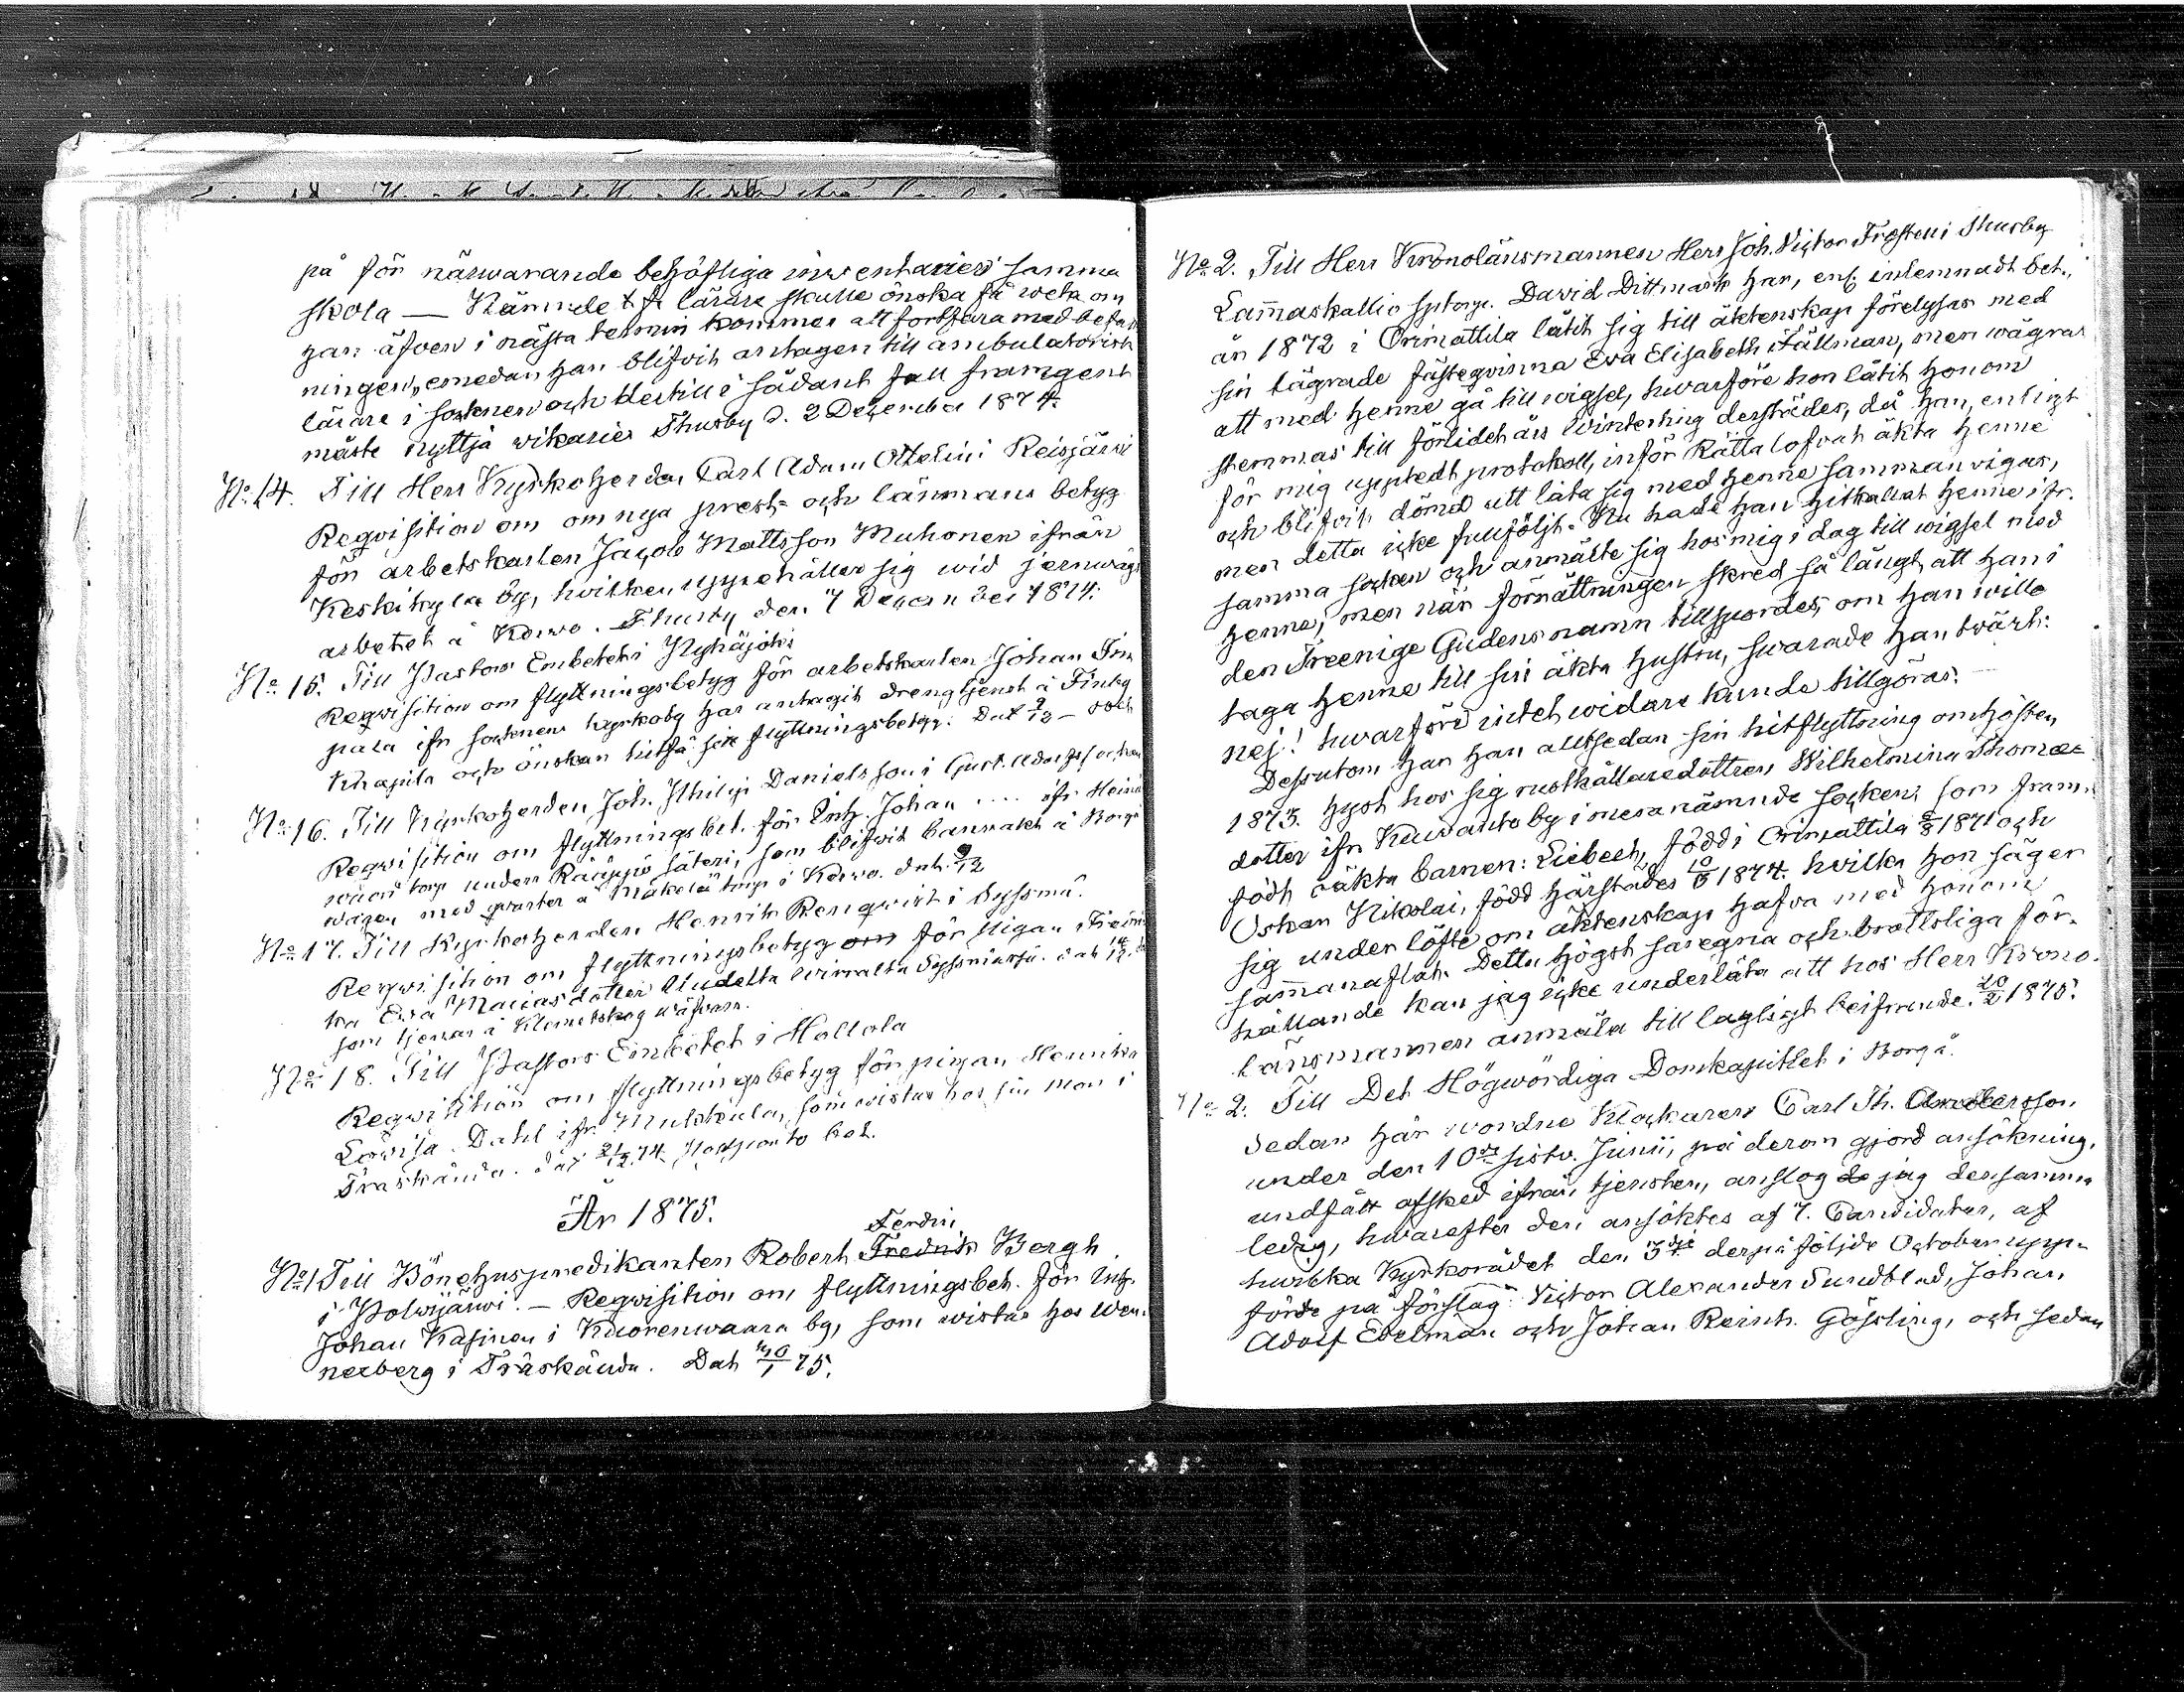 på för närwarande behöfliga inventarier i samma
skola — Nämnde t.f. lärare skulle önska få weta om
han äfven i nästa termin kommer att fortfara med befatt
ningen, emedan han blifvit antagen till ambulatorisk
lärare i socknen och dertill i sådant fall framgent
måste nyttja vikarie. Thusby d. 2 December 1874.
No 14. Till Herr Kyrkoherden Carl Adam Ottelin i Reisjärvi
Reqvisition om om nya prest- och länsmans betyg
för arbetskarlen Jacob Mattsson Muhonen ifrån
Keskikylä by, hvilken uppehåller sig wid jernwägs
arbetet å Korvo. Thusby den 7 December 1874.
No 15. Till Pastors Embetet i Pyhäjoki
Reqvisition om flyttningsbetyg för arbetskarlen Johan
pala ifr socknens kyrkoby har antagit drengtjenst å Finby
Knapila och önskar hitfå sitt flyttningsbetyg. Dat 7/12
No 16. Till Kyrkoherden Joh. Philip Danielsson i Gust. Adolfs socken
Reqvisition om flyttningsbet. för Inh. Johan .... ifr Heinä
torp under Rääppö säteri, som blifvit banvakt å Borgå
wägen med qvarter å Mäkelä torp i Korvo. dat. 9/12
No 17. Till Kyrkoherden Henrik Renqvist i Sysmä.
Reqvisition om flyttningsbetyg om för pigan
ka Eva Mariasdotter Uudelta Sysmästä. dat
som tjenar å Klemetskog
No 18. Till Pastors Embetet i Hollola
Reqvisition om flyttningsbetyg för pigan Henrika
Lovisa Dahl ifr som wistas hos sin man i
Träskända. dat 21/12 74.
År 1875.
Ferdin
No 1 Till Bönehuspredikanten Robert Fredrik Bergh
i Polvijärvi. — Reqvisition om flyttningsbet. för Inh.
Johan Kasinen i Kuorenwaara by, som wistas hos Wen-
nerberg i Träskända. Dat 75.
No 2. Till Herr Kronolänsmannen Herr Joh. Victor Frosten i Thusby
Lam̄askallio sptorp. David Dittmark har, enl. inlemnadt bet.,
år 1872 i Orimattila låtit sig till äktenskap förelysas med
sin lägrade fästeqvinna Eva Elisabeth Fällman, men wägrar
att med henne gå till wigsel, hwarföre hon låtit honom
stemmas till förlidet års Winterting derstädes, då han, enligt
för mig uppteedt protokoll, inför Rätta lofvat äkta henne
och blifvit dömd att låta sig med henne sammanvigas,
men detta icke fullföljt. Nu hade han hitkallat henne ifr.
samma socken och anmälte sig hos mig i dag till wigsel med
henne; men när förrättningen skred så långt, att han i
den Treenige Gudens namn tillspordes, om han wille
taga henne till sin äkta hustru, swarade han twärt:
nej! hwarföre intet widare kunde tillgöras. —
Dessutom har han alltsedan sin hitflyttning om hösten
1873. hyst hos sig rusthållaredottren Wilhelmina Thomæ
dotter ifr. Kuivanto by i meranämnde socken, som fram-
födt oäkta barnen: Liebeth, född i Orimattila 1871 och
Oskar Nikolai, född härstädes 1874. hvilka hon säger
sig under löfte om äktenskap hafva med honom
sam̄anaflat. Detta högst sargna och brottsliga för-
hållande kan jag icke underlåta att hos Herr Krono-
länsmannen anmäla till lagligt beifrande. 20/2 1875.
No 2. Till Det Högwördiga Domkapitlet i Borgå.
Sedan här wordne Klockaren Carl Th. Andersson
under den 10de sistv. Junii, på derom gjord ansökning,
undfått afsked ifrån tjensten, anslog de jag densamma
ledig, hwarefter den ansöktes af 7. Candidater, af
hwilka Kyrkorådet den 3dje derpå följde October upp-
förde på förslag: Victor Alexander Sundblad, Johan
Adolf Edelman och Johan Reinh. Gössling, och sedan